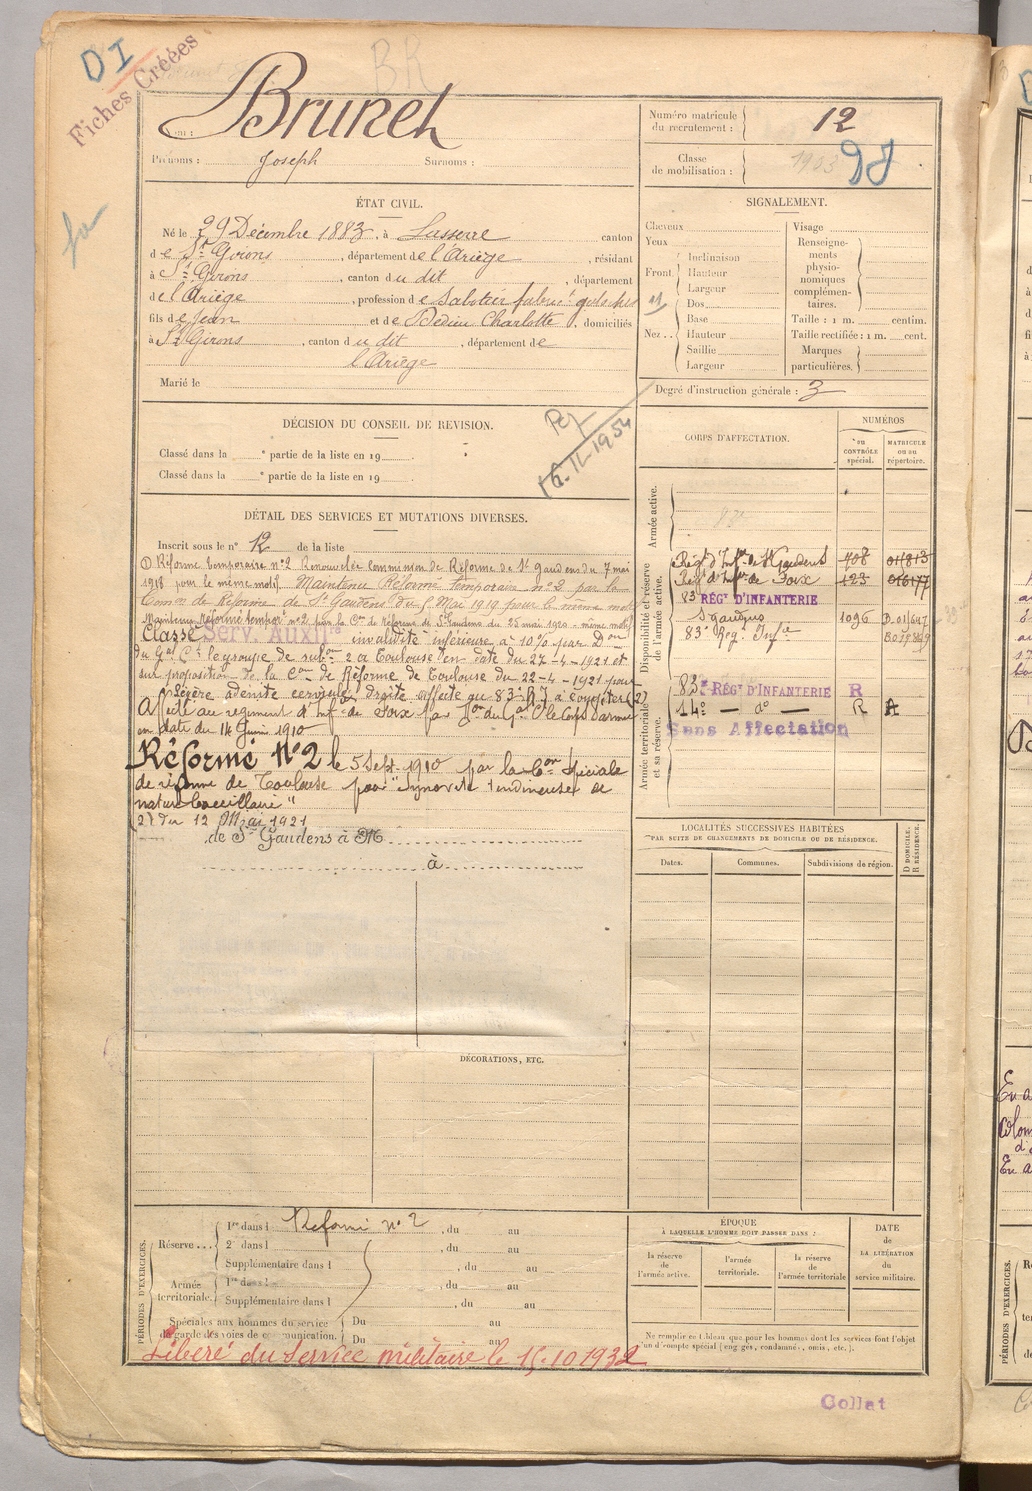 DI
Fiches Créées
BR
Brunet
Nom :
Prénoms : Joseph Surnoms :
Numéro matricule du recrutement : 12
Classe de mobilisation : 1903
ÉTAT CIVIL.
Né le 29 Décembre 1883, à Lasserre canton
de St Girons, département de l'Ariège, résidant
à St Girons, canton du dit, département
de l'Ariège, profession de Sabotier fabrict galoches
fils de Jean et de Dedieu Charlotte, domiciliés
à St Girons, canton du dit, département de
l'Ariège
Marié le
SIGNALEMENT.
Cheveux
Yeux
Front. Inclinaison
Hauteur
Largeur
Nez.. Dos
Base
Hauteur
Saillie
Largeur
Visage
Renseignements physionomiques complémentaires.
Taille : 1 m. centim.
Taille rectifiée : 1 m. cent.
Marques particulières.
Degré d'instruction générale : 3
DÉCISION DU CONSEIL DE REVISION.
Classé dans la e partie de la liste en 19
Classé dans la e partie de la liste en 19
16.11.1954
DÉTAIL DES SERVICES ET MUTATIONS DIVERSES.
Inscrit sous le n° 12 de la liste
① Réforme temporaire n°2 Renouvelée Commission de Réforme de St Gaudens du 7 mai
1918 pour le même motif. Maintenu Réformé temporaire n°2 par la
Comon de Réforme de St Gaudens du 5 Mai 1919 pour le même motif
Maintenu Réformé tempor n°2 par la Con de Réforme de St Gaudens du 25 mai 1920 - même motif
Classé Serv. Auxilre invalidité inférieure à 10% par Don
du Gal Ct le groupe de subon 2 à Toulouse en date du 27-4-1921 et
sur proposition de la Con de Réforme de Toulouse du 22-4-1921 pour
"Légère adénite cervicale droite" affecté au 83e R.I à compter (2)
Affecté au régiment d'Infie de Foix par Don du Gal Ct le Corps d'armée
en date du 14 Juin 1910
Réformé N°2 le 5 Sept. 1910 par la Con Spéciale
de réforme de Toulouse pour "synovite tendineuse de
nature bacillaire"
(2) du 12 Mai 1921
de St Gaudens à M.
à
CORPS D'AFFECTATION.
NUMÉROS
au CONTRÔLE spécial.
MATRICULE ou au répertoire.
Armée active.
Disponibilité et réserve de l'armée active.
Régt d'Infie de St Gaudens 708 011813
Régt d'Infie de Foix 123 016177
83e RÉGt D'INFANTERIE
St gaudens 1096
83e Régt Infie
Armée territoriale et sa réserve.
83e RÉGt D'INFANTERIE R
14e — do — R A
Sans Affectation
LOCALITÉS SUCCESSIVES HABITÉES
PAR SUITE DE CHANGEMENTS DE DOMICILE OU DE RÉSIDENCE.
Dates. Communes. Subdivisions de région.
D DOMICILE. R RÉSIDENCE.
DÉCORATIONS, ETC.
PÉRIODES D'EXERCICES.
Réserve... 1re dans l Réformé n° 2, du au
2e dans l , du au
Supplémentaire dans l , du au
Armée territoriale. 1re dans l , du au
Supplémentaire dans l , du au
Spéciales aux hommes du service de garde des voies de communication. Du au
Du au
Libéré du service militaire le 15.10.1932
ÉPOQUE
À LAQUELLE L'HOMME DOIT PASSER DANS :
la réserve de l'armée active.
l'armée territoriale.
la réserve de l'armée territoriale
DATE de LA LIBÉRATION du service militaire.
Ne remplir ce tableau que pour les hommes dont les services font l'objet
d'un décompte spécial (engagés, condamnés, omis, etc.).
Collat